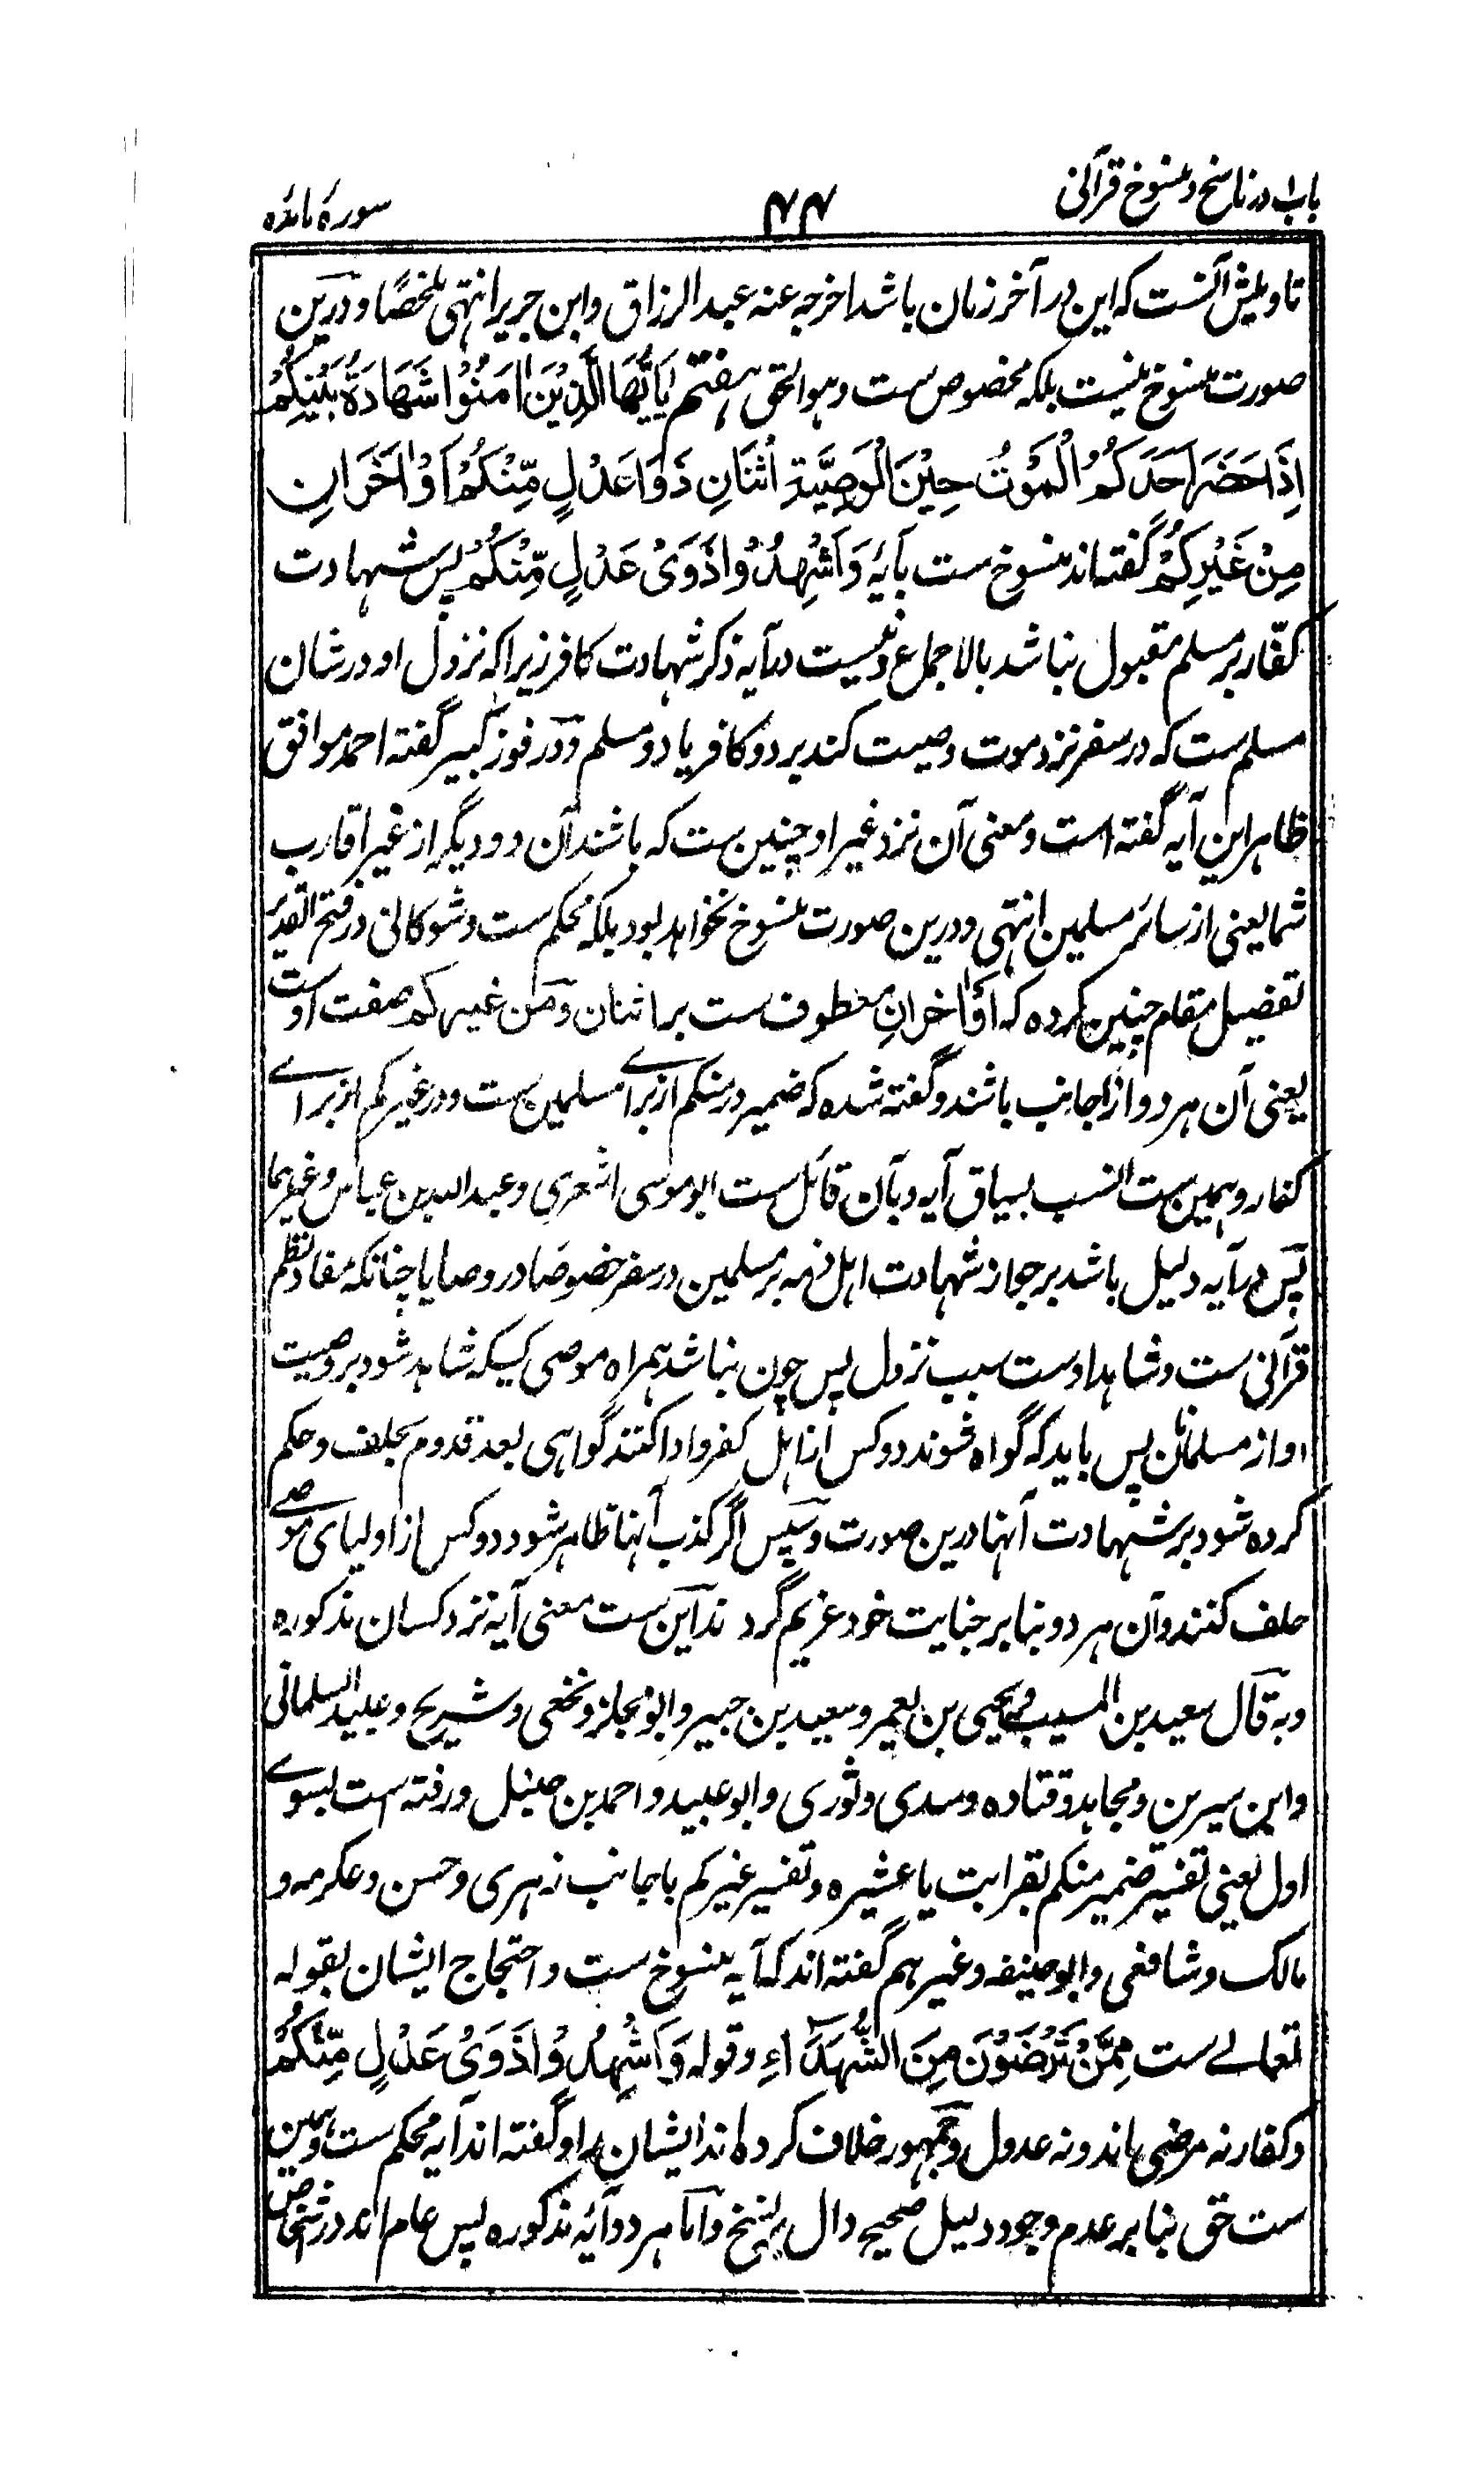 باب ۱ در ناسخ و منسوخ قرآنی
۴۴
سورۂ مائدہ
تاویلش آنست کہ این در آخر زمان باشد اخرجہ عنہ عبد الرزاق وابن جریر انتہی ملخصًا و درین
صورت منسوخ نیست بلکہ مخصوص ست وہو الحق ہفتم یٰۤاَیُّهَا الَّذِیْنَ اٰمَنُوْا شَهَادَةُ بَیْنِكُمْ
اِذَا حَضَرَ اَحَدَكُمُ الْمَوْتُ حِیْنَ الْوَصِیَّةِ اثْنَانِ ذَوَا عَدْلٍ مِّنْكُمْ اَوْ اٰخَرَانِ
مِنْ غَیْرِكُمْ گفتہ اند منسوخ ست بآیۂ وَاَشْهِدُوْا ذَوَیْ عَدْلٍ مِّنْكُمْ پس شہادت
کفّار بر مسلم مقبول نباشد بالاجماع و نیست درآیہ ذکر شہادت کافر زیرا کہ نزول او در شان
مسلم ست کہ در سفر نزد موت وصیت کند بر دو کافر یا دو مسلم و در فوز کبیر گفتہ احمد موافق
ظاہر این آیہ گفتہ است و معنی آن نزد غیر او چنین ست کہ باشند آن دو دیگر از غیر اقارب
شما یعنی از سائر مسلمین انتہی و درین صورت منسوخ نخواہد بود بلکہ محکم ست و شوکانی در فتح القدیر
تفصیل مقام چنین کردہ کہ اَوْ اٰخران معطوف ست بر اثنان و من غیرکم صفت اوست
یعنی آن ہر دو از اجانب باشند و گفتہ شدہ کہ ضمیر در منکم از برای مسلمین ست و در غیرکم از برای
کفار و ہمین ست انسب بسیاق آیہ و بآن قائل ست ابو موسی اشعری و عبد اللہ بن عباس وغیرہما
پس درآیہ دلیل باشد بر جواز شہادت اہل ذمہ بر مسلمین در سفر خصوصًا در وصایا چنانکہ مفاد نظم
قرآنی ست و شاہد اوست سبب نزول پس چون نباشد ہمراہ موصی کسیکہ شاہد شود بر وصیت
او از مسلمانان پس باید کہ گواہ شوند دو کس از اہل کفر و ادا کنند گواہی بعد قدوم بحلف و حکم
کردہ شود بر شہادت آنہا درین صورت و سپس اگر کذب آنہا ظاہر شود دو کس از اولیای موصی
حلف کنند و آن ہر دو بنا بر جنایت خود غریم گردند این ست معنی آیہ نزد کسان مذکورہ
وبہ قال سعید بن المسیب و یحیی بن یعمر و سعید بن جبیر و ابو مجلز و نخعی و شریح و عبید السلمانی
وابن سیرین و مجاہد و قتادہ و سدی و ثوری و ابو عبید و احمد بن حنبل و رفتہ است بسوی
اول یعنی تفسیر ضمیر منکم بقرابت یا عشیرہ و تفسیر غیرکم باجانب زہری و حسن و عکرمہ و
مالک و شافعی و ابو حنیفہ وغیرہم گفتہ اند کہ آیہ منسوخ ست و احتجاج ایشان بقولہ
تعالے ست مِمَّنْ تَرْضَوْنَ مِنَ الشُّهَدَآءِ و قولہ وَاَشْهِدُوْا ذَوَیْ عَدْلٍ مِّنْكُمْ
و کفار نہ مرضی اند و نہ عدول و جمہور خلاف کردہ اند ایشان را و گفتہ اند آیہ محکم ست و ہمین
ست حق بنا بر عدم وجود دلیل صحیح دال بر نسخ و اما ہر دو آیۂ مذکورہ پس عام اند در اشخاص